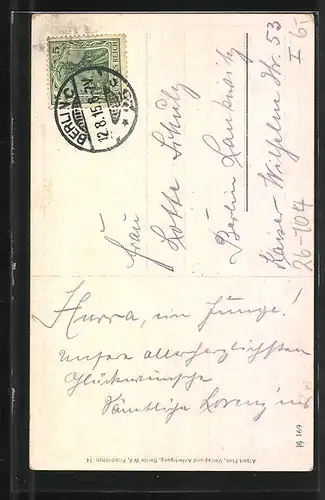 Hurra, ein Junge!
Unsere allerherzlichsten
Glückwünsche
Sämtliche Lorenz'ens
Frau
Lotte Schulz
Berlin Lankwitz
Kaiser Wilhelm Str. 53
I
26-704
5
DEUTSCHES REICH
BERLIN C
12.8.15.
Albert Fink, Verlag und Anfertigung, Berlin W 8, Friedrichstr. 74
169